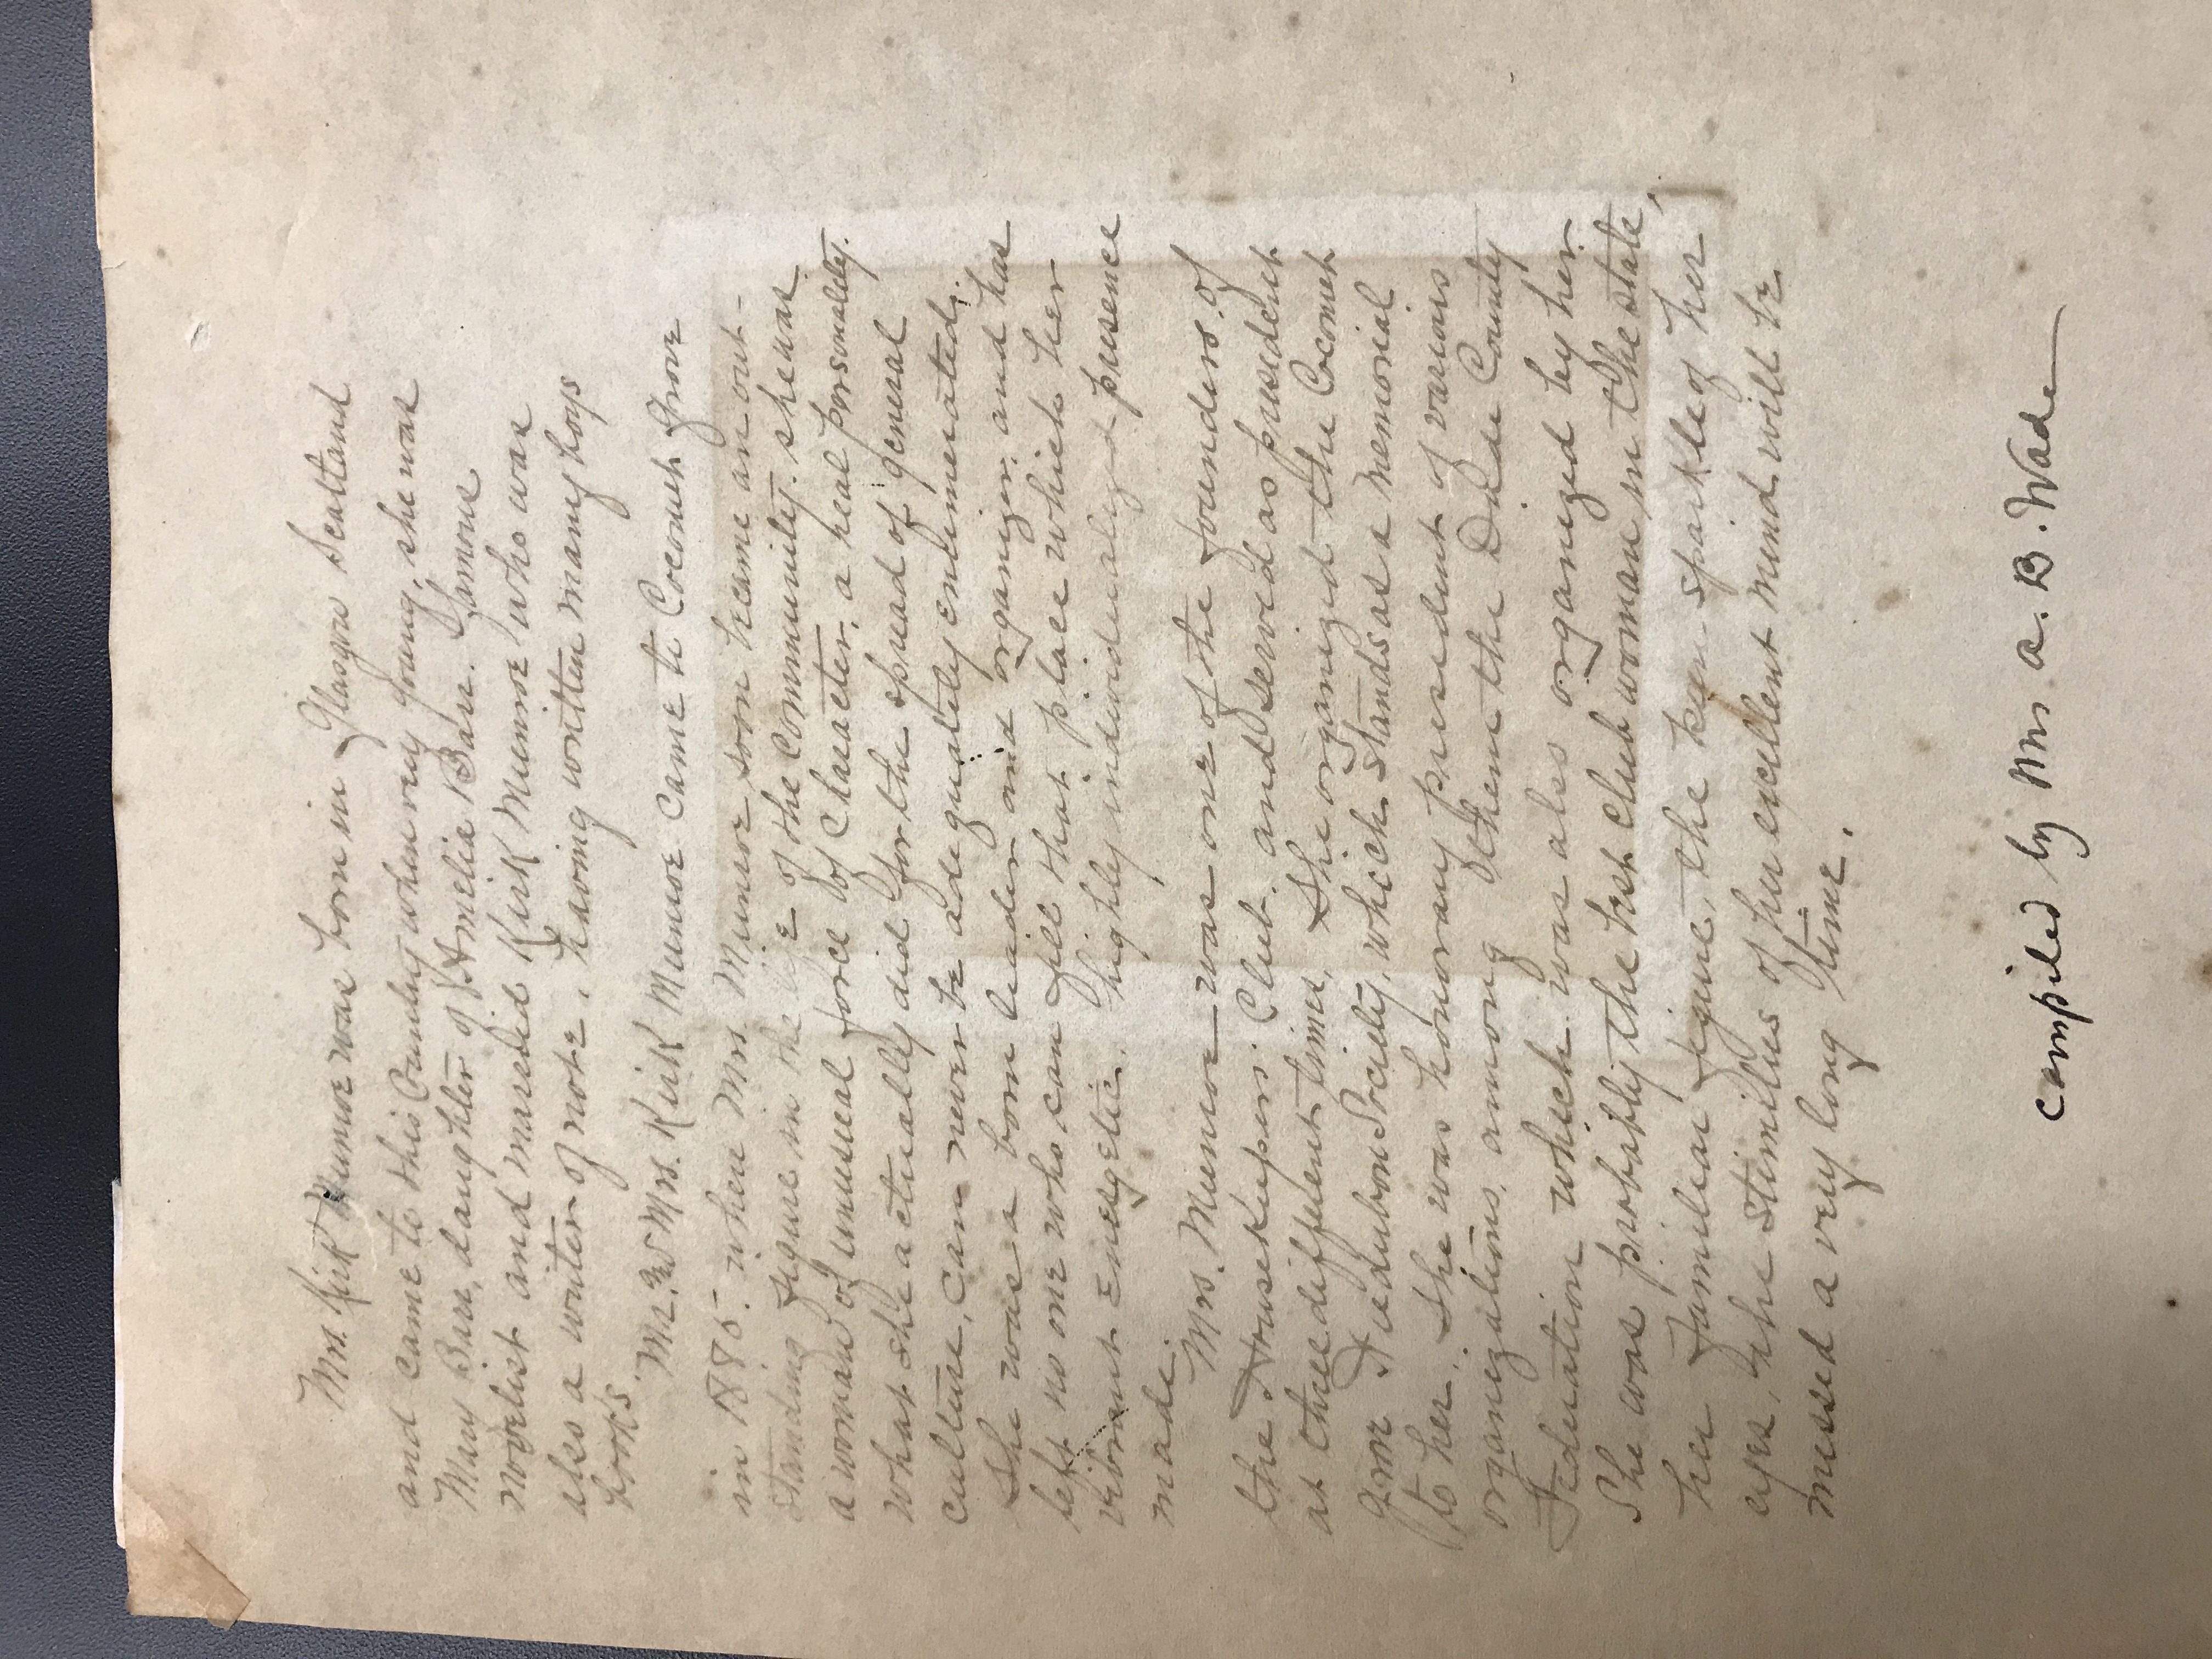 Mrs. Kirk Munroe was born in Glasgow Scaltand
and came to this Country when very young, she was
Mary Barr, daughter of Amelia Barr. famous
novelist and married Kirk Munroe who was
also a writer of note, having written many boys
books.
Mr. and Mrs. Kirk Munroe came to Coconut Grove
in 1885. where Mrs. Munroe soon became an out-
standing figure in the life of the community. she was
a woman of unusual force of Character, a real personality.
What she actually did for the spread of general
culture, can never be adequately enumerated.
She was a born leader and organizer, and has
left no one who can fill that place which her
vibrant energetic, highly individualized presence
made.
Mrs. Munroe was one of the founders of
the Housekeepers Club. and served as president
at three different times, She organized the Coconut
grove Audubon Society, which stands as a memorial
to her. She was honorary president of various
organizations, among them the Dade County
Federation which was also organized by her.
She was probably the best club woman in the state,
her familiar figure, the keen sparkle of her
eyes, the stimilus of her excellent mind will be
missed a very long time.
compiled by Mrs A. B. Wade